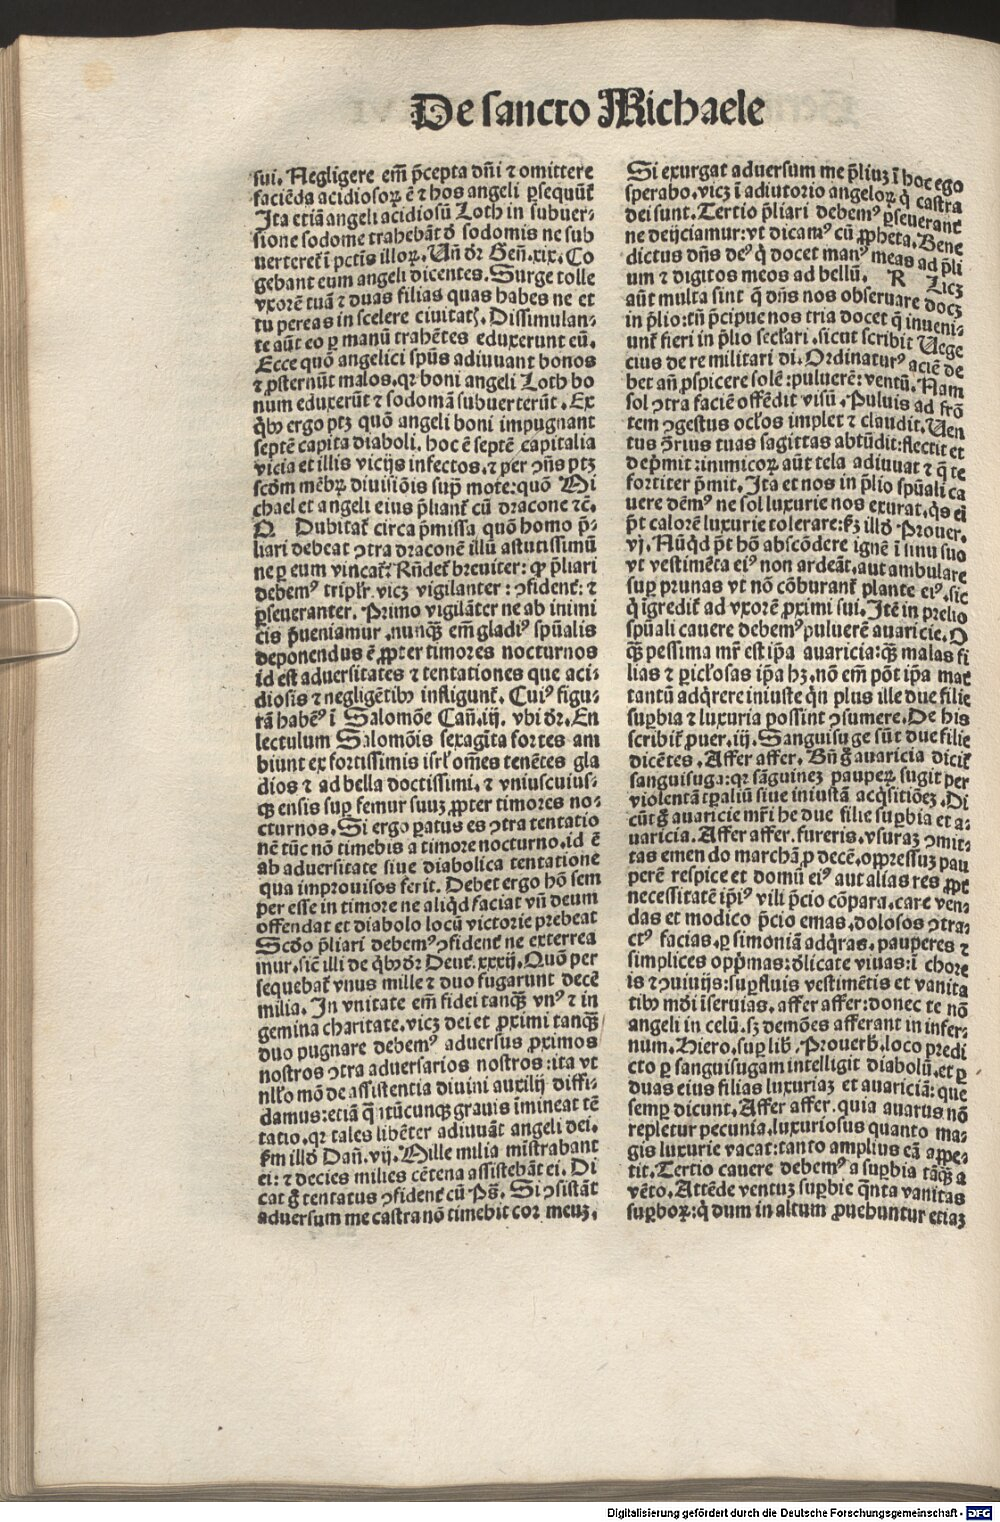 De sancto Michaele
sui. Negligere em̄ p̄cepta dn̄i ⁊ omittere
faciēda acidiosoꝝ ē ⁊ hos angeli ꝑsequūt̄
Ita etiā angeli acidiosū Loth in subuer⸗
sione sodome trahebāt d̄ sodomis ne sub
uerteret̄ ī pctīs illoꝝ. Un̄ dr̄ Gen̄. xix. Co
gebant eum angeli dicentes. Surge tolle
vxorē tuā ⁊ duas filias quas habes ne et
tu pereas in scelere ciuitat̄. Dissimulan⸗
te aūt eo ꝑ manū trahētes eduxerunt eū.
Ecce quō angelici spūs adiuuant bonos
⁊ ꝓsternūt malos. qꝛ boni angeli Loth bo
num eduxerūt ⁊ sodomā subuerterūt. Ex
q̄bꝰ ergo ptꝫ quō angeli boni impugnant
septē capita diaboli. hoc ē septē capitalia
vicia et illis vicijs infectos. ⁊ per ꝯn̄s ptꝫ
scd̄m mēbꝝ diuisiōis sup̄ mote: quō Mi
chael et angeli eius p̄liant̄ cū dracone ⁊c̄.
Q Dubitat̄ circa p̄missa quō homo p̄⸗
liari debeat ꝯtra draconē illū astutissimū
ne ꝑ eum vincat̄? Rn̄det̄ breuiter: ꝙ p̄liari
debemꝰ triplr̄. vicꝫ vigilanter: ꝯfident̄: ⁊
ꝑseueranter. Primo vigilāter ne ab inimi
cis p̄ueniamur. nunqꝫ̄ em̄ gladiꝰ spūalis
deponendus ē ꝓpter timores nocturnos
id est aduersitates ⁊ tentationes que aci⸗
diosis ⁊ negligētibꝰ infligunt̄. Cuiꝰ figu⸗
rā habēꝰ ī Salomōe Can̄. iij. vbi dr̄. En
lectulum Salomōis sexagīta fortes am
biunt ex fortissimis isrl̄ om̄es tenētes gla
dios ⁊ ad bella doctissimi. ⁊ vniuscuius⸗
qꝫ ensis suꝑ femur suuꝫ ꝓpter timores no⸗
cturnos. Si ergo ꝑatus es ꝯtra tentatio
nē tūc nō timebis a timore nocturno. id ē
ab aduersitate siue diabolica tentatione
qua improuisos ferit. Debet ergo hō sem
per esse in timore ne aliq̇d faciat vn̄ deum
offendat et diabolo locū victorie prebeat
Scd̄o p̄liari debemꝰ ꝯfident̄ ne exterrea
mur. sic̄ illi de q̄bꝰ dr̄ Deut̄. xxxij. Quō per
sequebat̄ vnus mille ⁊ duo fugarunt decē
milia. In vnitate em̄ fidei tanqꝫ̄ vnꝰ ⁊ in
gemina charitate. vicꝫ dei et ꝓximi tanqꝫ̄
duo pugnare debemꝰ aduersus ꝓximos
nostros ꝯtra aduersarios nostros: ita vt
nll̄o mō de assistentia diuini auxilij diffi⸗
damus: etiā q̄ntūcunqꝫ grauis īmineat tē
tatio. qꝛ tales libēter adiuuāt angeli dei.
f̄m illd̄ Dan̄. vij. Mille milia mīstrabant
ei: ⁊ decies milies cētena assistebāt ei. Di
cat g̊ tentatus ꝯfident̄ cū Ps̄. Si ꝯsistāt
aduersum me castra nō timebit cor meuꝫ.
Si exurgat aduersum me p̄liuꝫ ī hoc ego
sperabo. vicꝫ ī adiutorio angeloꝝ q̇ castra
dei sunt. Tertio p̄liari debemꝰ ꝑseuerant̄
ne deijciamur: vt dicamꝰ cū ꝓpheta. Bene
dictus dn̄s deꝰ q̇ docet manꝰ meas ad p̄li
um ⁊ digitos meos ad bellū. R Licꝫ
aūt multa sint q̄ dn̄s nos obseruare docꝫ
in p̄lio: tn̄ p̄cipue nos tria docet q̄ inueni⸗
unt̄ fieri in p̄lio secl̄ari. sicut scribit Uege
cius de re militari di. Ordinaturꝰ aciē de
bet an̄ ꝓspicere solē: puluerē: ventū. Nam
sol ꝯtra faciē offēdit visū. Puluis ad frō
tem ꝯgestus ocl̄os implet ⁊ claudit. Uen
tus ꝯrius tuas sagittas abtūdit: flectit et
dep̄mit: inimicoꝝ aūt tela adiuuat ⁊ q̄ te
fortiter p̄mit. Ita et nos in p̄lio spūali ca
uere dem̄ꝰ ne sol luxurie nos exurat. q̇s em̄
p̄t calorē luxurie tolerare: f̄ꝫ illd̄ Prouer.
vj. Nūq̇d p̄t hō abscōdere ignē ī sinu suo
vt vestimēta eiꝰ non ardeāt. aut ambulare
suꝑ prunas vt nō cōburant̄ plante eiꝰ. sic
q̇ īgredit̄ ad vxorē ꝓximi sui. Itē in prelio
spūali cauere debemꝰ puluerē auaricie. O
qꝫ̄ pessima mr̄ est ip̄a auaricia: qꝫ̄ malas fi
lias ⁊ ꝑicl̄osas ip̄a hꝫ. nō em̄ pōt ip̄a mat̄
tantū adq̇rere iniuste q̇n plus ille due filie
suꝑbia ⁊ luxuria possint ꝯsumere. De his
scribit̄ ꝓuer. iij. Sanguisuge sūt due filie
dicētes. Affer affer. Bn̄ g̊ auaricia dicit̄
sanguisuga: qꝛ sāguinez pauperꝝ sugit per
violentā tꝑaliū siue iniustā acq̇sitiōeꝫ. Di
cūt g̊ auaricie mr̄i he due filie suꝑbia et a⸗
uaricia. Affer affer. fureris. vsuraꝫ ꝯmit⸗
tas emendo marchā ꝑ decē. oꝑpressuꝫ pau
perē respice et domū eiꝰ aut alias res ꝓpt̄
necessitatē ip̄iꝰ vili p̄cio cōpara. care ven⸗
das et modico p̄cio emas. dolosos ꝯtra⸗
ctꝰ facias. ꝑ simoniā adq̇ras. pauperes ⁊
simplices opp̄mas: d̄licate viuas: ī chore
is ⁊ ꝯuiuijs: suꝑfluis vestimētis et vanita
tibꝰ mōi īseruias. affer affer: donec te nō
angeli in celū. sꝫ demōes afferant in infer⸗
num. Hiero. suꝑ lib̄. Prouerb̄. loco predi
cto ꝑ sanguisugam intelligit diabolū. et ꝑ
duas eius filias luxuriaꝫ et auariciā: que
semꝑ dicunt. Affer affer. quia auarus nō
repletur pecunia. luxuriosus quanto ma⸗
gis luxurie vacat: tanto amplius eā appe⸗
tit. Tertio cauere debemꝰ a suꝑbia tāqꝫ̄ a
vēto. Attēde ventuꝫ suꝑbie q̄nta vanitas
suꝑboꝝ: q̇ dum in altum ꝓuehuntur etiaꝫ
Digitalisierung gefördert durch die Deutsche Forschungsgemeinschaft - DFG